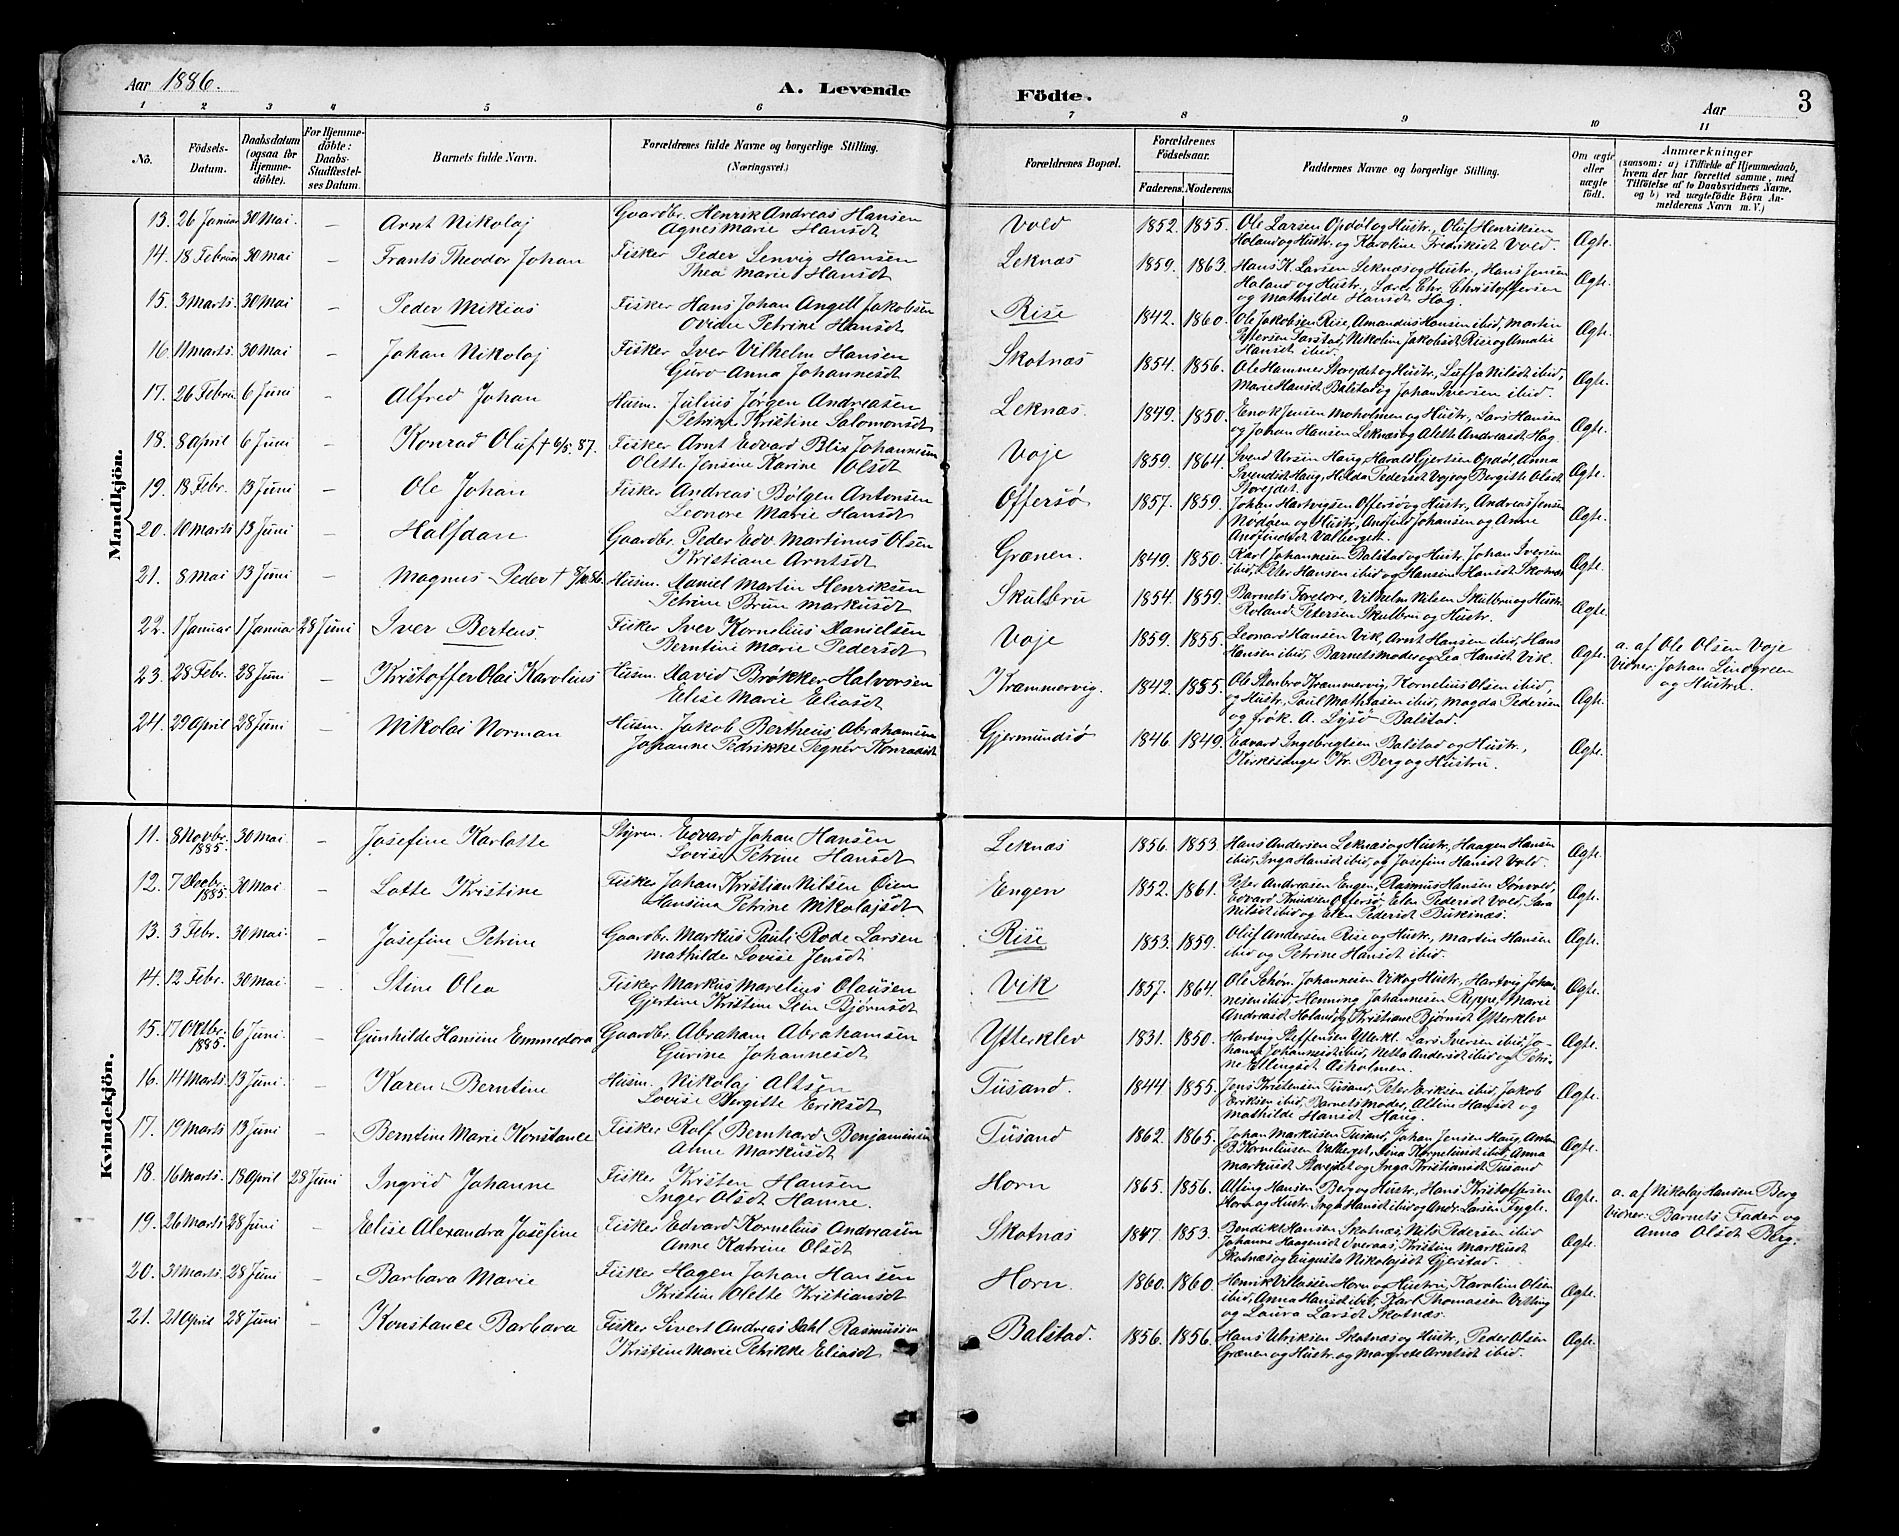 Aar 1886.
A. Levende
Födte.
Aar
3
1 2 3 4 5 6 7 8 9 10 11
No.
Födsels-Datum.
Daabsdatum (ogsaa for Hjemme-döbte).
For Hjemme-döbte: Daabs-Stadfestel-ses Datum.
Barnets fulde Navn.
Forældrenes fulde Navne og borgerlige Stilling. (Næringsvei.)
Forældrenes Bopæl.
Forældrenes Födselsaar.
Faderens. Moderens.
Faddernes Navne og borgerlige Stilling.
Om ægte eller uægte födt.
Anmærkninger
(saasom: a) i Tilfælde af Hjemmedaab,
hvem der har forrettet samme, med
Tilföielse af to Daabsvidners Navne.
og b) ved uægtefödte Börn An-
melderens Navn m. V.)
Mandkjön.
13. 26 Januar 30 Mai. – Arnt Nikolaj Gaardbr. Henrik Andreas Hansen Vold 1852. 1855. Ole Larsen Opdøl og Hustr., Oluf Henriksen Ægte.
Agnes Marie Hansdt Holand og Hustr. og Karoline Fredriksdt Vold.
14. 18 Februar 30 Mai – Frants Theodor Johan Fisker Peder Lenvig Hansen Leknæs 1859. 1863. Hans K. Larsen Leknæs og Hustr., Hans Jensen Ægte.
Thea Marie Hansdt Holand og Hustr., Lars Chr. Christoffersen
og Mathilde Hansdt Hag.
15. 3 Marts. 30 Mai – Peder Mikias Fisker Hans Johan Angell Jakobsen Rise 1842. 1860. Ole Jakobsen Rise, Amandus Hansen ibid, Martin Ægte.
Ovidie Petrine Hansdt Petersen Farstad, Nikoline Jakobsdt Rise og Amalie
Hansdt ibid.
16. 11 Marts. 30 Mai – Johan Nikolaj Fisker Iver Vilhelm Hansen Skotnæs 1854. 1856. Ole Hammer Storejdet og Hustr., Luffa Nilsdt ibid, Ægte.
Guro Anna Johannesdt Marie Hansdt Balstad og Johan Iversen ibid.
17. 26 Febru 6 Juni – Alfred Johan Husm. Julius Jørgen Andreasen Leknæs. 1849. 1850. Enok Jensen Moholmen og Hustr., Lars Hansen Ægte.
Petrine Kristine Salomonsdt og Johan Hansen Leknæs og Alette Andreasdt Hag.
18. 8 April 6 Juni – Konrad Oluf † 6/5. 87. Fisker Arnt Edvard Blix Johannesen Voje 1859. 1864. Svend Ursin Haug, Harald Gjertsen Opdøl, Anna Ægte.
Olette Jensine Karine Olsdt Svendsdt Haug, Hilda Pedersdt Voje og Bergitte Olsdt
Storejdet.
19. 18 Febr. 13 Juni – Ole Johan Fisker Andreas Bølgen Antonsen Offersø 1857. 1859. Johan Hartvigsen Offersø og Hustr., Andreas Jensen Ægte.
Leonore Marie Hansdt Nødøen og Hustr., Andfind Johansen og Anne
Andfindsdt Valberget.
20. 10 Marts 13 Juni – Halfdan Gaardbr. Peder Edv. Martinus Olsen Grænen. 1849. 1850. Karl Johannesen Balstad og Hustr, Johan Iversen Ægte.
Kristiane Arntsdt ibid, Peter Hansen ibid og Hansine Hansdt Skotnæs
21. 8 Mai 13 Juni – Magnus Peder † 5/10 86. Husm. Daniel Martin Henriksen Skulbru 1854. 1859. Barnets Forelore, Vilhelm Nilsen Skulbru og Hustr. Ægte.
Petrine Brun Markusdt Roland Petersen Skulbru og Hustr.
22. 1 Januar 1 Januar 28 Juni Iver Berteus. Fisker Iver Kornelius Danielsen Voje 1859. 1855. Leonard Hansen Vik, Arnt Hansen ibid, Hans Ægte. a. af Ole Olsen Voje
Berntine Marie Pedersdt Hansen ibid, Barnets Moder og Lea Hansdt Vik. Vidner: Johan Lindgreen
og Hustru.
23. 28 Febr. 28 Juni. – Kristoffer Olai Karolius Husm. David Brøkker Halvorsen Krammervig. 1842. 1855. Ole Stenbro Krammervig, Kornelius Olsen ibid, Ægte.
Elise Marie Eliasdt og Hustr., Paul Mathiasen ibid, Magda Pedersen
og frøk. A. Lysø Balstad.
24. 29 April 28 Juni – Nikolai Norman Husm. Jakob Bertheus Abrahamsen Gjermundsø 1846. 1849. Edvard Ingebregtsen Balstad og Hustr., Ægte.
Johanne Fedrikke Tegnér Konradsdt Kirkesanger Kr. Berg og Hustru.
Kvindekjön.
11. 8 Novbr. 1885. 30 Mai – Josefine Karlotte Styrm. Edvard Johan Hansen Leknæs 1856. 1853. Hans Andersen Leknæs og Hustr., Haagen Hansen Ægte.
Lovise Petrine Hansdt ibid, Inga Hansdt ibid, og Josefine Hansdt Vold.
12. 7 Decbr. 1885. 30 Mai. – Lotte Kristine Fisker Johan Kristian Nilsen Øien Engen 1852. 1861. Peter Andreasen Engen, Rasmus Hansen Dønvold, Ægte.
Hansina Petrine Nikolajsdt Edvard Knudsen Offersø, Elen Pedersdt Vold, Sara
Nilsdt ibid og Elen Pedersdt Buksnæs.
13. 3 Febr. 30 Mai. – Josefine Petrine Gaardbr. Markus Pauli Rode Larsen Rise 1853. 1859. Oluf Andersen Rise og Hustr., Martin Hansen Ægte.
Mathilde Lovise Jensdt ibid og Petrine Hansdt ibid.
14. 12 Febr. 30 Mai. – Stine Olea Fisker Markus Marelius Olausen Vik 1857. 1864. Ole Schøn. Johannesen Vik og Hustr., Hartvig Johan- Ægte.
Gjertine Kristine Lein Bjørnsdt nesen ibid, Henning Johannesen Reppe, Marie
Andreasdt Holand og Kristiane Bjørnsdt Ytterklev
15. 17 Oktbr. 1885. 6 Juni. – Gunhilde Hansine Emmedora Gaardbr. Abraham Abrahamsen Ytterklev 1831. 1850. Hartvig Steffensen Ytterkl. Lars Iversen ibid, Jo- Ægte.
Gurine Johannesdt hanna Johannesdt ibid, Netta Andersdt ibid og Petri-
ne Ellingsdt Axholmen.
16. 14 Marts 13 Juni. – Karen Berntine Husm. Nikolaj Altsen Tusand. 1844. 1855. Jens Kristensen Tusand, Peter Eriksen ibid, Jakob Ægte.
Lovise Bergitte Eriksdt Eriksen ibid, Barnets Moder, Altine Hansdt og
Mathilde Hansdt Haug.
17. 19 Marts 13 Juni – Berntine Marie Konstance Fisker Rolf Bernhard Benjaminsen Tusand 1862. 1865. Johan Markusen Tusand, Johan Jensen Haug, Anton Ægte.
Anne Markusdt B. Korneliusen Valberget, Lina Korneliusdt ibid, Anna
Markusdt Storejdet og Inga Kristiansdt Tusand
18. 16 Marts. 18 April 28 Juni Ingrid Johanne Fisker Kristen Hansen Horn 1865. 1856. Alfing Hansen Berg og Hustr., Hans Kristoffersen Ægte. a. af Nikolaj Hansen Berg
Inger Olsdt Hamre. Horn og Hustr. Inga Hansdt ibid og Andr. Larsen Fygle. Vidner: Barnets Fader og
Anna Olsdt Berg.
19. 26 Marts 28 Juni – Elise Alexandra Josefine Fisker Edvard Kornelius Andreasen Skotnæs 1847. 1853. Bendikt Hansen Skotnæs, Nils Pedersen ibid Ægte.
Anne Katrine Olsdt Johanne Haagensdt Sveraas, Kristine Markusdt
Skotnæs og Augusta Nikolajsdt Gjerstad.
20. 3 Marts. 28 Juni – Barbara Marie Fisker Hagen Johan Hansen Horn. 1860. 1860. Henrik Vikassen Horn og Hustru, Karoline Olsen Ægte.
Kristine Olette Kristiansdt ibid, Anna Hansdt ibid, Karl Thomassen Vitting
og Laura Larsdt Skotnæs.
21. 21 April 28 Juni – Konstance Barbara Fisker Sivert Andreas Dahl Rasmussen Balstad. 1856. 1856. Hans Ulriksen Skotnæs og Hustr., Peder Olsen Ægte.
Kristine Marie Petrikke Eliasdt Grænen og Hustr. og Margrete Arntsdt ibid.